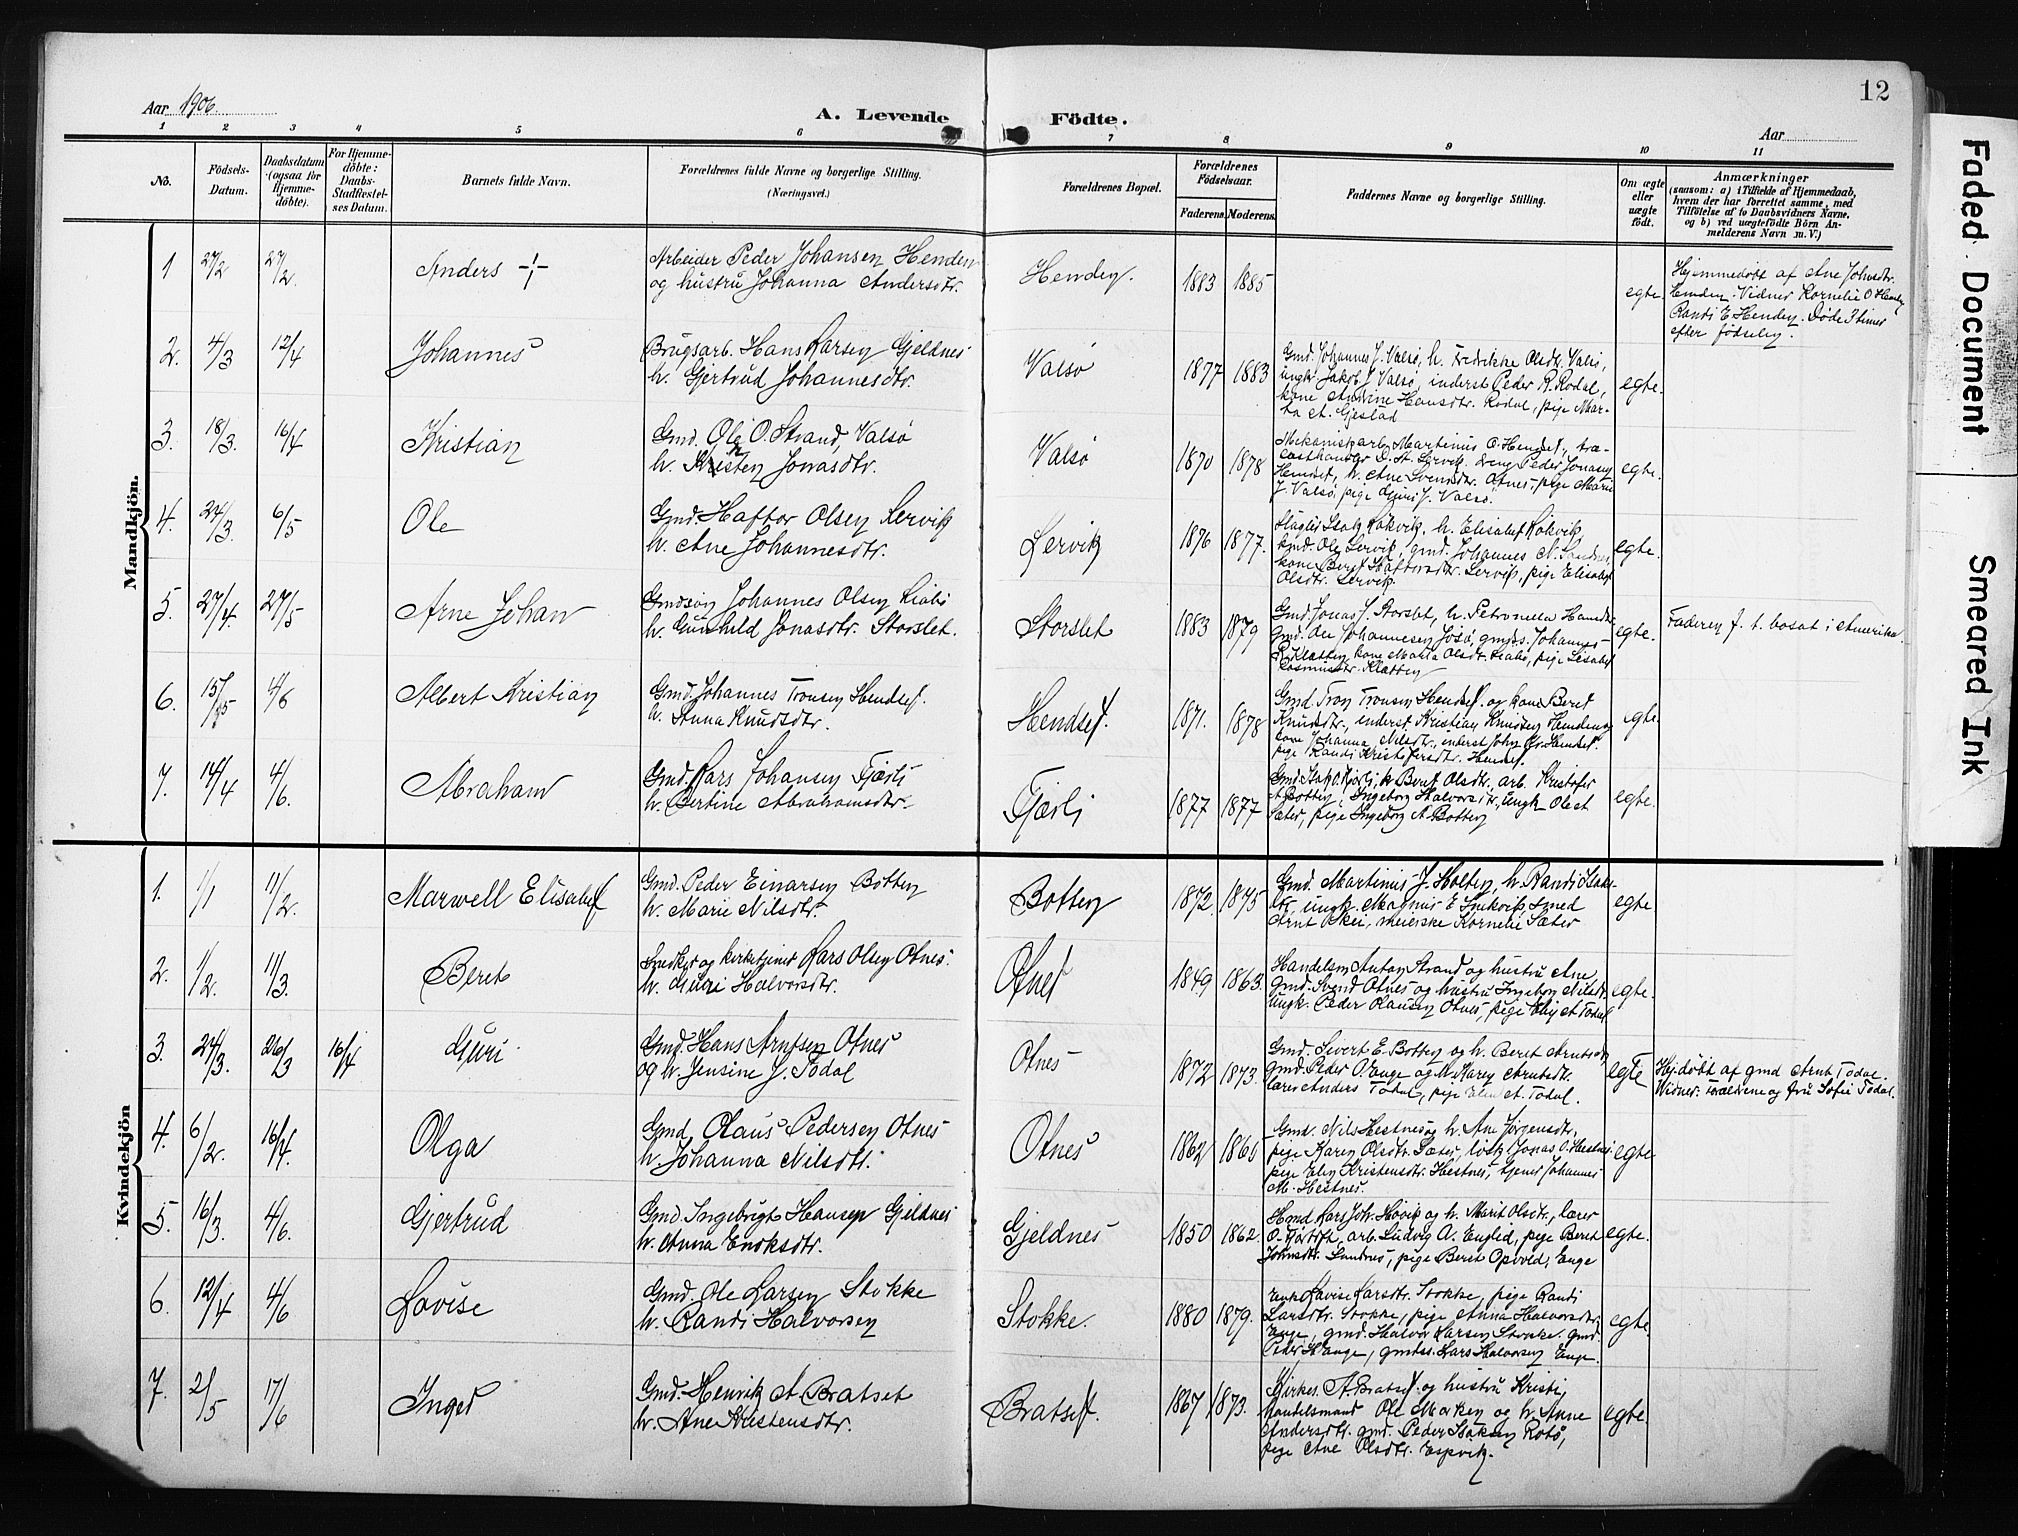 12
Aar 1906.
A. Levende Födte.
Aar
1 2 3 4 5 6 7 8 9 10 11
No.
Födsels-Datum.
Daabsdatum (ogsaa för Hjemme-döbte).
For Hjemme-döbte: Daabs-Stadfæstel-ses Datum.
Barnets fulde Navn.
Forældrenes fulde Navne og borgerlige Stilling.
(Næringsvei.)
Forældrenes Bopæl.
Forældrenes Födselsaar.
Faderens. Moderens.
Faddernes Navne og borgerlige Stilling.
Om ægte eller uægte födt.
Anmærkninger
(saasom: a) i Tilfælde af Hjemmedaab,
hvem der har forrettet samme, med
Tilföielse af to Daabsvidners Navne,
og b) ved uægtefödte Börn An-
melderens Navn m. V.)
Mandkjön.
1 27/2 27/2. Anders -|-
Arbeider Peder Johansen Henden
og hustru Johanna Andersdtr.
Henden. 1883 1885 egte
Hjemmedøbt af Ane Johnsdtr.
Henden. Vidner Kornelie O Henden
Randi E Henden. Døde 3 timer
efter fødselen.
2. 4/3 12/4 Johannes
Brugsarb. Hans Larsen Gjeldnes
h. Gjertrud Johannesdtr.
Valsø 1877 1883
Gmd. Johannes J. Valsø, h. Fredrikke Olsdtr. Valsø,
ungk. Jakob J Valsø, inderst Peder R. Rodal,
kone Andrine Hansdtr. Rodal, pige Mar-
ta A. Gjeslad
egte.
3. 18/3. 16/4 Kristian
Gmd. Ole O. Strand, Valsø
h. Kristen Jonasdtr.
Valsø 1870 1878
Martinus O. Hendset, træ-
Peder Jonasen
Hendset, h. Ane Svendsdtr. Otnes, pige Marie
J. Valsø, pige Guri J. Valsø.
egte.
4. 24/3. 6/5 Ole
Gmd. Haftor Olsen Lervik
h. Ane Johannesdtr.
Lervik 1876 1877.
h. Elisabet Kokvik,
Gmd. Ole Lervik, gmd. Johannes N. Sandnes,
kone Beret Haftorsdtr. Lervik, pige Elisabet
Olsdtr. Lervik.
egte.
5. 27/4. 27/5 Arne Johan
Gmdsøn Johannes Olsen Liabø
h. Gunhild Jonasdtr. Storslet.
Storslet 1883 1879
Gmd. Jonas J. Storslet, h. Petronella
Gmd. Ole Johannesen Josø, gmds. Johannes
R. Kletten, kone Marta Olsdtr. Liabø, pige Lisabet
Rasmusdtr. Kletten
egte.
Faderen f. t. bosat i Amerika.
6. 15/5 4/6 Albert Kristian
Gmd. Johannes Tronsen Hendset.
h. Anna Knudsdtr.
Hendset. 1871. 1878
Gmd. Tron Tronsen Hendset og kone Beret
Knudsdtr., inderst Kristian Knudsen Henden og
kone Johanna Nilsdtr., inderst John Kr. Hendset.
pige Randi Kristofersdtr. Hendset.
egte
7. 14/4 4/6. Abraham
Gmd. Lars Johansen Fjærli
h. Bertine Abrahamsdtr.
Fjærli 1877 1877
Gmd. Isak O. Fjærli, h. Beret Olsdtr., arb. Kristofer
A Botten, Ingeborg Halvorsdtr., ungk. Ole A
Sæter, pige Ingeborg A Botten
egte.
Kvindekjön
1. 1/1 11/2. Marwell Elisabet
Gmd. Peder Einarsen Botten
h. Marie Nilsdtr.
Botten 1872. 1875
Gmd. Martinus J. Holten, h. Randi Isaks-
dtr., ungk. Magnus E Snekvik, smed
Arnt Øksi, meierske Kornelie Sæter
egte.
2. 1/2. 11/3. Beret
og kirketjener Lars Olsen Otnes.
h. Guri Halvorsdtr.
Otnes 1849 1863.
Handelsm Anton Strand og hustru Ane
Gmd. Svend Otnes og hustru Ingeborg Nilsdtr.
Ungk. Peder Olausen Otnes, pige Elie A Todal.
egte.
3. 24/3. 26/3 16/4 Guri
Gmd. Hans Arntsen Otnes
og h. Jensine J. Todal
Otnes 1872 1873.
Gmd. Sivert E. Botten og h. Beret Arntsdtr,
gmd. Peder O Enge og h. Karen Arntsdtr.
lærer Anders Todal, pige Elen A. Todal.
egte
Hj.døbt af gmd Arnt Todal.
Vidner: Forældrene og fru Sofie Todal.
4. 6/2. 16/4. Olga
Gmd. Olaus Pedersen Otnes
h. Johanna Nilsdtr.
Otnes 1862 1860
Gmd. Nils Hestnes og h. Ane Jørgensdtr,
pige Karen Olsdtr. Sæter, Jonas O. Hestnes
pige Elen Kristensdtr. Hestnes, tjener Johannes
M. Hestnes.
egte
5. 16/3. 4/6. Gjertrud
Gmd. Ingebrigt Hansen Gjeldnes
h. Anna Eriksdtr.
Gjeldnes 1850 1862.
Gmd. Lars Joh. Hövik og h. Marit Olsdtr., lærer
O. Fjærtoft, arb. Ludvig A. Englid, pige Beret
Johnsdtr. Sandnes, pige Beret Opvold, Enge
egte.
6. 12/4 4/6 Lovise
Gmd. Ole Larsen Stokke
h. Randi Halvorsen
Stokke. 1880 1879.
Enke Lovise Larsdtr. Stokke, pige Randi
Larsdtr. Stokke, pige Anna Halvorsdtr.
Enge, gmd. Halvor Larsen Stokke. gmd.
Peder H Enge, gmdss. Lars Halvorsen Enge.
egte.
7. 2/5 17/6 Inger
Gmd. Henrik A. Bratset
h. Ane Kristensdtr.
Bratset. 1867 1873.
Kirkes. A. Bratset og hustru Kristi,
handelsmand Ole Marken og h. Anne
Andersdtr. gmd. Peder Isaksen Rotø,
pige Ane Olsdtr. Espvik.
egte.
Faded Document
Smeared Ink